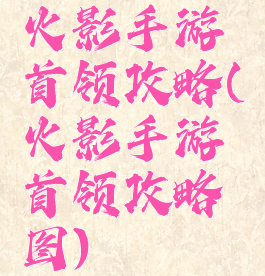 火影手游
首领攻略(
火影手游
首领攻略
图)